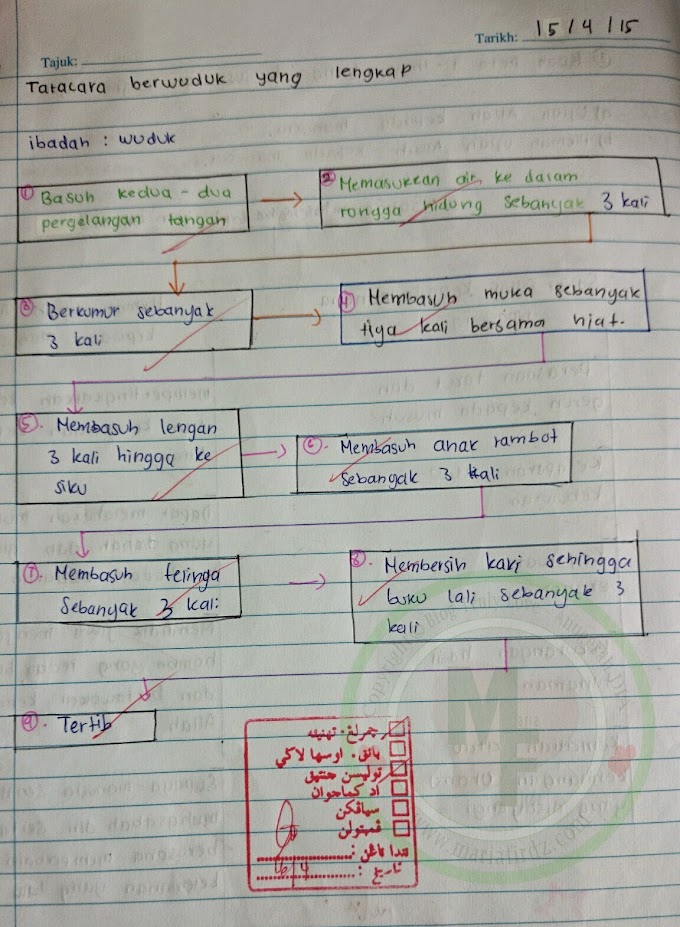 Tarikh: 15/4/15
Tajuk:
Tatacara berwuduk yang lengkap
ibadah : wuduk
① Basuh kedua-dua
pergelangan tangan
② Memasukkan air ke dalam
rongga hidung sebanyak 3 kali
③ Berkumur sebanyak
3 kali
④ Membasuh muka sebanyak
tiga kali bersama niat.
⑤. Membasuh lengan
3 kali hingga ke
siku
⑥. Membasuh anak rambot
sebanyak 3 kali
⑦. Membasuh telinga
sebanyak 3 kali.
⑧. Membersih kaki sehingga
buku lali sebanyak 3
kali
⑨. Tertib
چمرلڠ. تهنيئه
باݢق. اوسها لاݢي
توليسن
اد كماجوان
سمڤورناكن
تندا تاڠن :
تاريخ : 16/4
www.mariafirdz.com